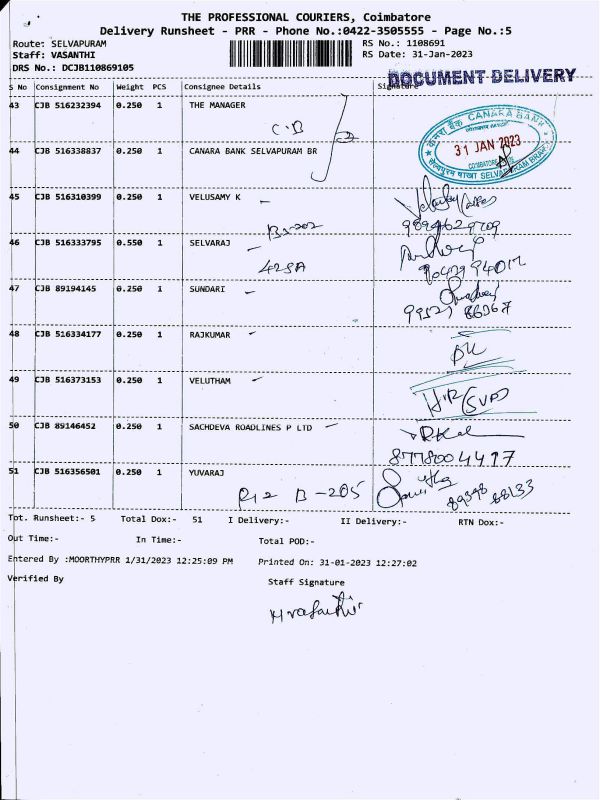 THE PROFESSIONAL COURIERS, Coimbatore
Delivery Runsheet - PRR - Phone No.:0422-3505555 - Page No.:5
Route: SELVAPURAM
RS No.: 1108691
Staff: VASANTHI
RS Date: 31-Jan-2023
DRS No.: DCJB110869105
DOCUMENT DELIVERY
S No Consignment No Weight PCS Consignee Details Signature
43 CJB 516232394 0.250 1 THE MANAGER
C.B
CANARA BANK
31 JAN 2023
SELVAPURAM BRANCH
44 CJB 516338837 0.250 1 CANARA BANK SELVAPURAM BR
45 CJB 516310399 0.250 1 VELUSAMY K
46 CJB 516333795 0.550 1 SELVARAJ
428A
47 CJB 89194145 0.250 1 SUNDARI
48 CJB 516334177 0.250 1 RAJKUMAR
49 CJB 516373153 0.250 1 VELUTHAM
50 CJB 89146452 0.250 1 SACHDEVA ROADLINES P LTD
8778004497
51 CJB 516356501 0.250 1 YUVARAJ
B-205
Tot. Runsheet:- 5 Total Dox:- 51 I Delivery:- II Delivery:- RTN Dox:-
Out Time:- In Time:- Total POD:-
Entered By :MOORTHYPRR 1/31/2023 12:25:09 PM Printed On: 31-01-2023 12:27:02
Verified By Staff Signature